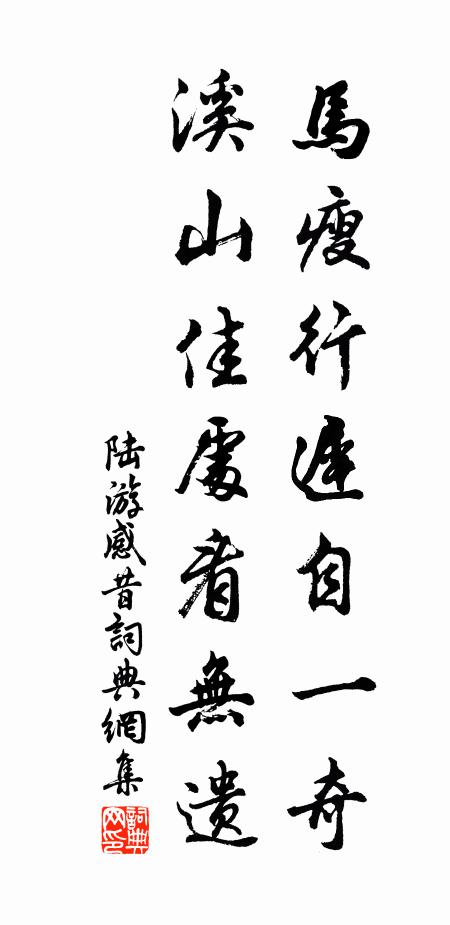 馬瘦行遲自一奇
溪山佳處看無遺
陸游感昔詞典網集
詞典網印